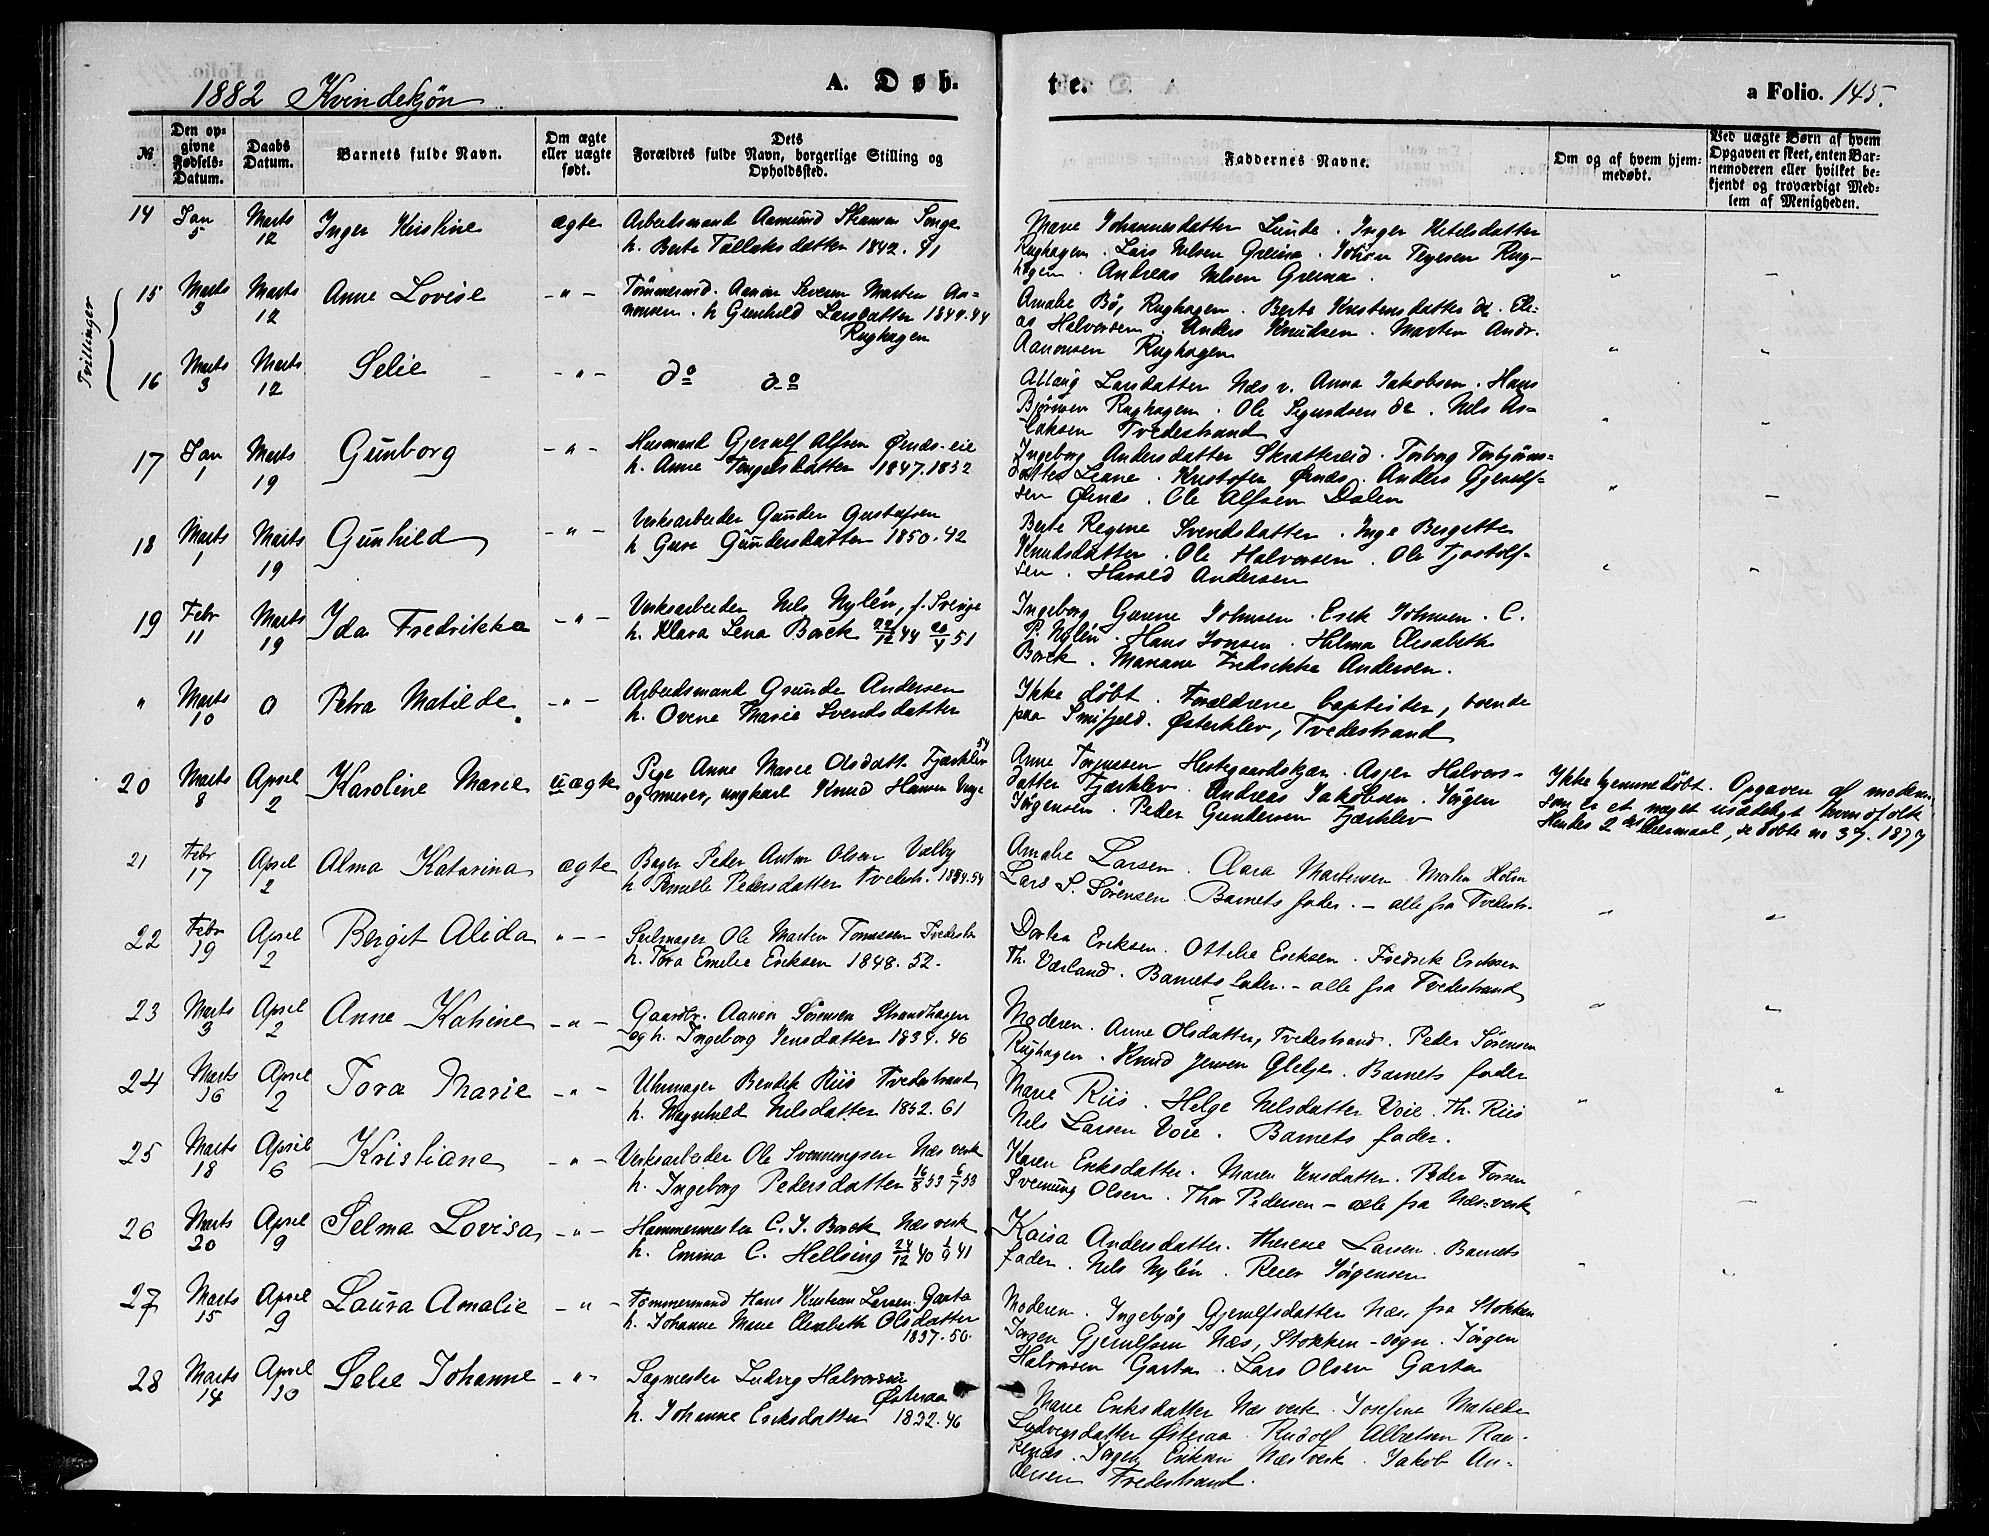 1882 Kvindekjøn
A. Døb-
te.
a Folio. 145.
№
Den opgivne Fødsels-Datum.
Daabs Datum.
Barnets fulde Navn.
Om ægte eller uægte født.
Dets Forældres fulde Navn, borgerlige Stilling og Opholdssted.
Faddernes Navne.
Om og af hvem hjemmedøbt.
Ved uægte Børn af hvem Opgaven er skeet, enten Barnemoderen eller hvilket bekjendt og troværdigt Medlem af Menigheden.
14 Jan 5 Marts 12 Inger Kirstine ægte Arbeidsmand Aamund Songe
h. Berte Tallaksdatter 1842. 41
Marie Johannesdatter Lunde. Inger Ketelsdatter
Rughagen. Lars Nilsen Greina. Johan Rug-
hagen. Andreas Nilsen Greina.
Tvillinger
15 Marts 3 Marts 12 Anne Lovise -"- Tømmermd. Aanon Severin Martin Aa-
nonsen. h Gunhild Larsdatter 1844. 44
Rughagen
Amalie Bø, Rughagen. Berte Kristensdatter do. Eli-
as Halvorsen. Anders Knudsen. Martin Andr.
Aanonsen Rughagen
16 Marts 3 Marts 12 Selie -"- do do
Aslaug Larsdatter Næs v. Anna Jakobsen. Hans
Bjørnsen Rughagen. Ole Sigurdsen do. Nils As-
laksen Tvedestrand
17 Jan 1 Marts 19 Gunborg -"- Husmand Gjerulf Alfsen Ørnds-eie
h. Anne Tengelsdatter 1847. 1852
Ingeborg Andersdatter Skrattereid. Torborg Torbjørns-
datter Leane. Kristofer Ørnæs. Anders Gjerulf-
sen Ørnæs. Ole Alfsen Dalen
18 Marts 1 Marts 19 Gunhild -"- Verksarbeider Gunder Gustafsen
h Gure Gundersdatter 1850. 42
Berte Regine Svendsdatter. Inge Bergitte
Knudsdatter. Ole Halvorsen. Ole Tjostolf-
sen. Harald Andersen
19 Febr 11 Marts 19 Ida Fredrikke -"- Verksarbeider Nils Nylén, f. Sverige
h. Klara Lena Borck 22/12 44 20/4 51
Ingeborg Gurine Johnsen. Erik Johnsen. C.
P. Nylén. Hans Jonsen. Hilma Elisabeth
Borck. Mariane Fredrikke Andersen.
" Marts 10 0 Petra Matilde -"- Arbeidsmand Grunde Andersen
h. Ovene Marie Svendsdatter
Ikke døbt. Forældrene baptister, boende
paa Smifjeld. Østerklev, Tvedestrand
20 Marts 8 April 2 Karoline Marie uægte Pige Anne Marie Olsdatt. Fjærklev 54
og murer, ungkarl Knud Hansen
Anne Hestgaardskjær. Asjer Halvors-
datter Fjærklev. Andreas Jakobsen. Jørgen
Jørgensen. Peder Gundersen Fjærklev
Ikke hjemmedøbt. Opgaven af moderen,
som er et meget usædeligt kvindfolk
Hendes 2det leiermaal, se døbte no 37. 1877
21 Febr 17 April 2 Alma Katarina ægte Bager Peder Anton Olsen Valby
h Pernille Pedersdatter Tvedestr. 1854. 54
Amalie Larsen. Aara Martinsen. Malin Holm
Lars S. Sørensen. Barnets fader. - alle fra Tvedestr.
22 Febr 19 April 2 Bergit Alida "-- Seilmager Ole Martin Tonnessen Tvedestr
h. Tora Emelie Eriksen 1848. 52.
Dortea Eriksen. Ottilie Eriksen. Fredrik Eriksen
Th. Værland. Barnets fader. - alle fra Tvedestrand
23 Marts 3 April 2 Anne Katrine -"- Gaardbr. Aanon Sørensen Strandhagen
og h. Ingeborg Jensdatter 1834. 46
Moderen. Anne Olsdatter, Tvedestrand. Peder Sørensen
Rughagen. Knud Jensen Glelje. Barnets fader
24 Marts 16 April 2 Tora Marie -"- Uhrmager Bendik Riis Tvedestrand
h. Magnhild Nilsdatter 1852. 61
Marie Riis. Helge Nilsdatter Voie. Th. Riis
Nils Larsen Voie. Barnets fader.
25 Marts 18 April 6 Kristiane -"- Verksarbeider Ole Svenningsen Næs verk
h. Ingeborg Pedersdatter 16/8 53 6/7 53
Karen Eriksdatter. Maren Jensdatter. Peder Torsen
Svenning Olsen. Thor Pedersen - alle fra Næs verk
26 Marts 20 April 9 Selma Lovisa -"- Hammermester C. J. Borck Næs verk
h. Emma C. Hellsing 24/12 40 1/9 41
Kaisa Andersdatter. Therese Larsen. Barnets
fader. Nils Nylén. Reier Jørgensen
27 Marts 15 April 9 Laura Amalie -"- Tømmermand Hans Kristian Larsen Garta
h. Johanne Marie Elisabeth Olsdatter
1837. 50.
Moderen. Ingebjørg Gjerulfsdatter Næs, fra Stokken
Jørgen Gjerulfsen Næs, Stokken-sogn. Jørgen
Halvorsen Garta. Lars Olsen Garta
28 Marts 14 April 10 Selie Johanne -"- Sagmester Ludvig Halvorsen
Østeraa
h. Johanne Eriksdatter 1832. 46
Marie Eriksdatter Næs verk. Josefine Matilde
Ludvigsdatter Østeraa. Rudolf Albertsen Ran-
enæs. Jørgen Eriksen Næs verk. Jakob An-
dersen Tvedestrand.